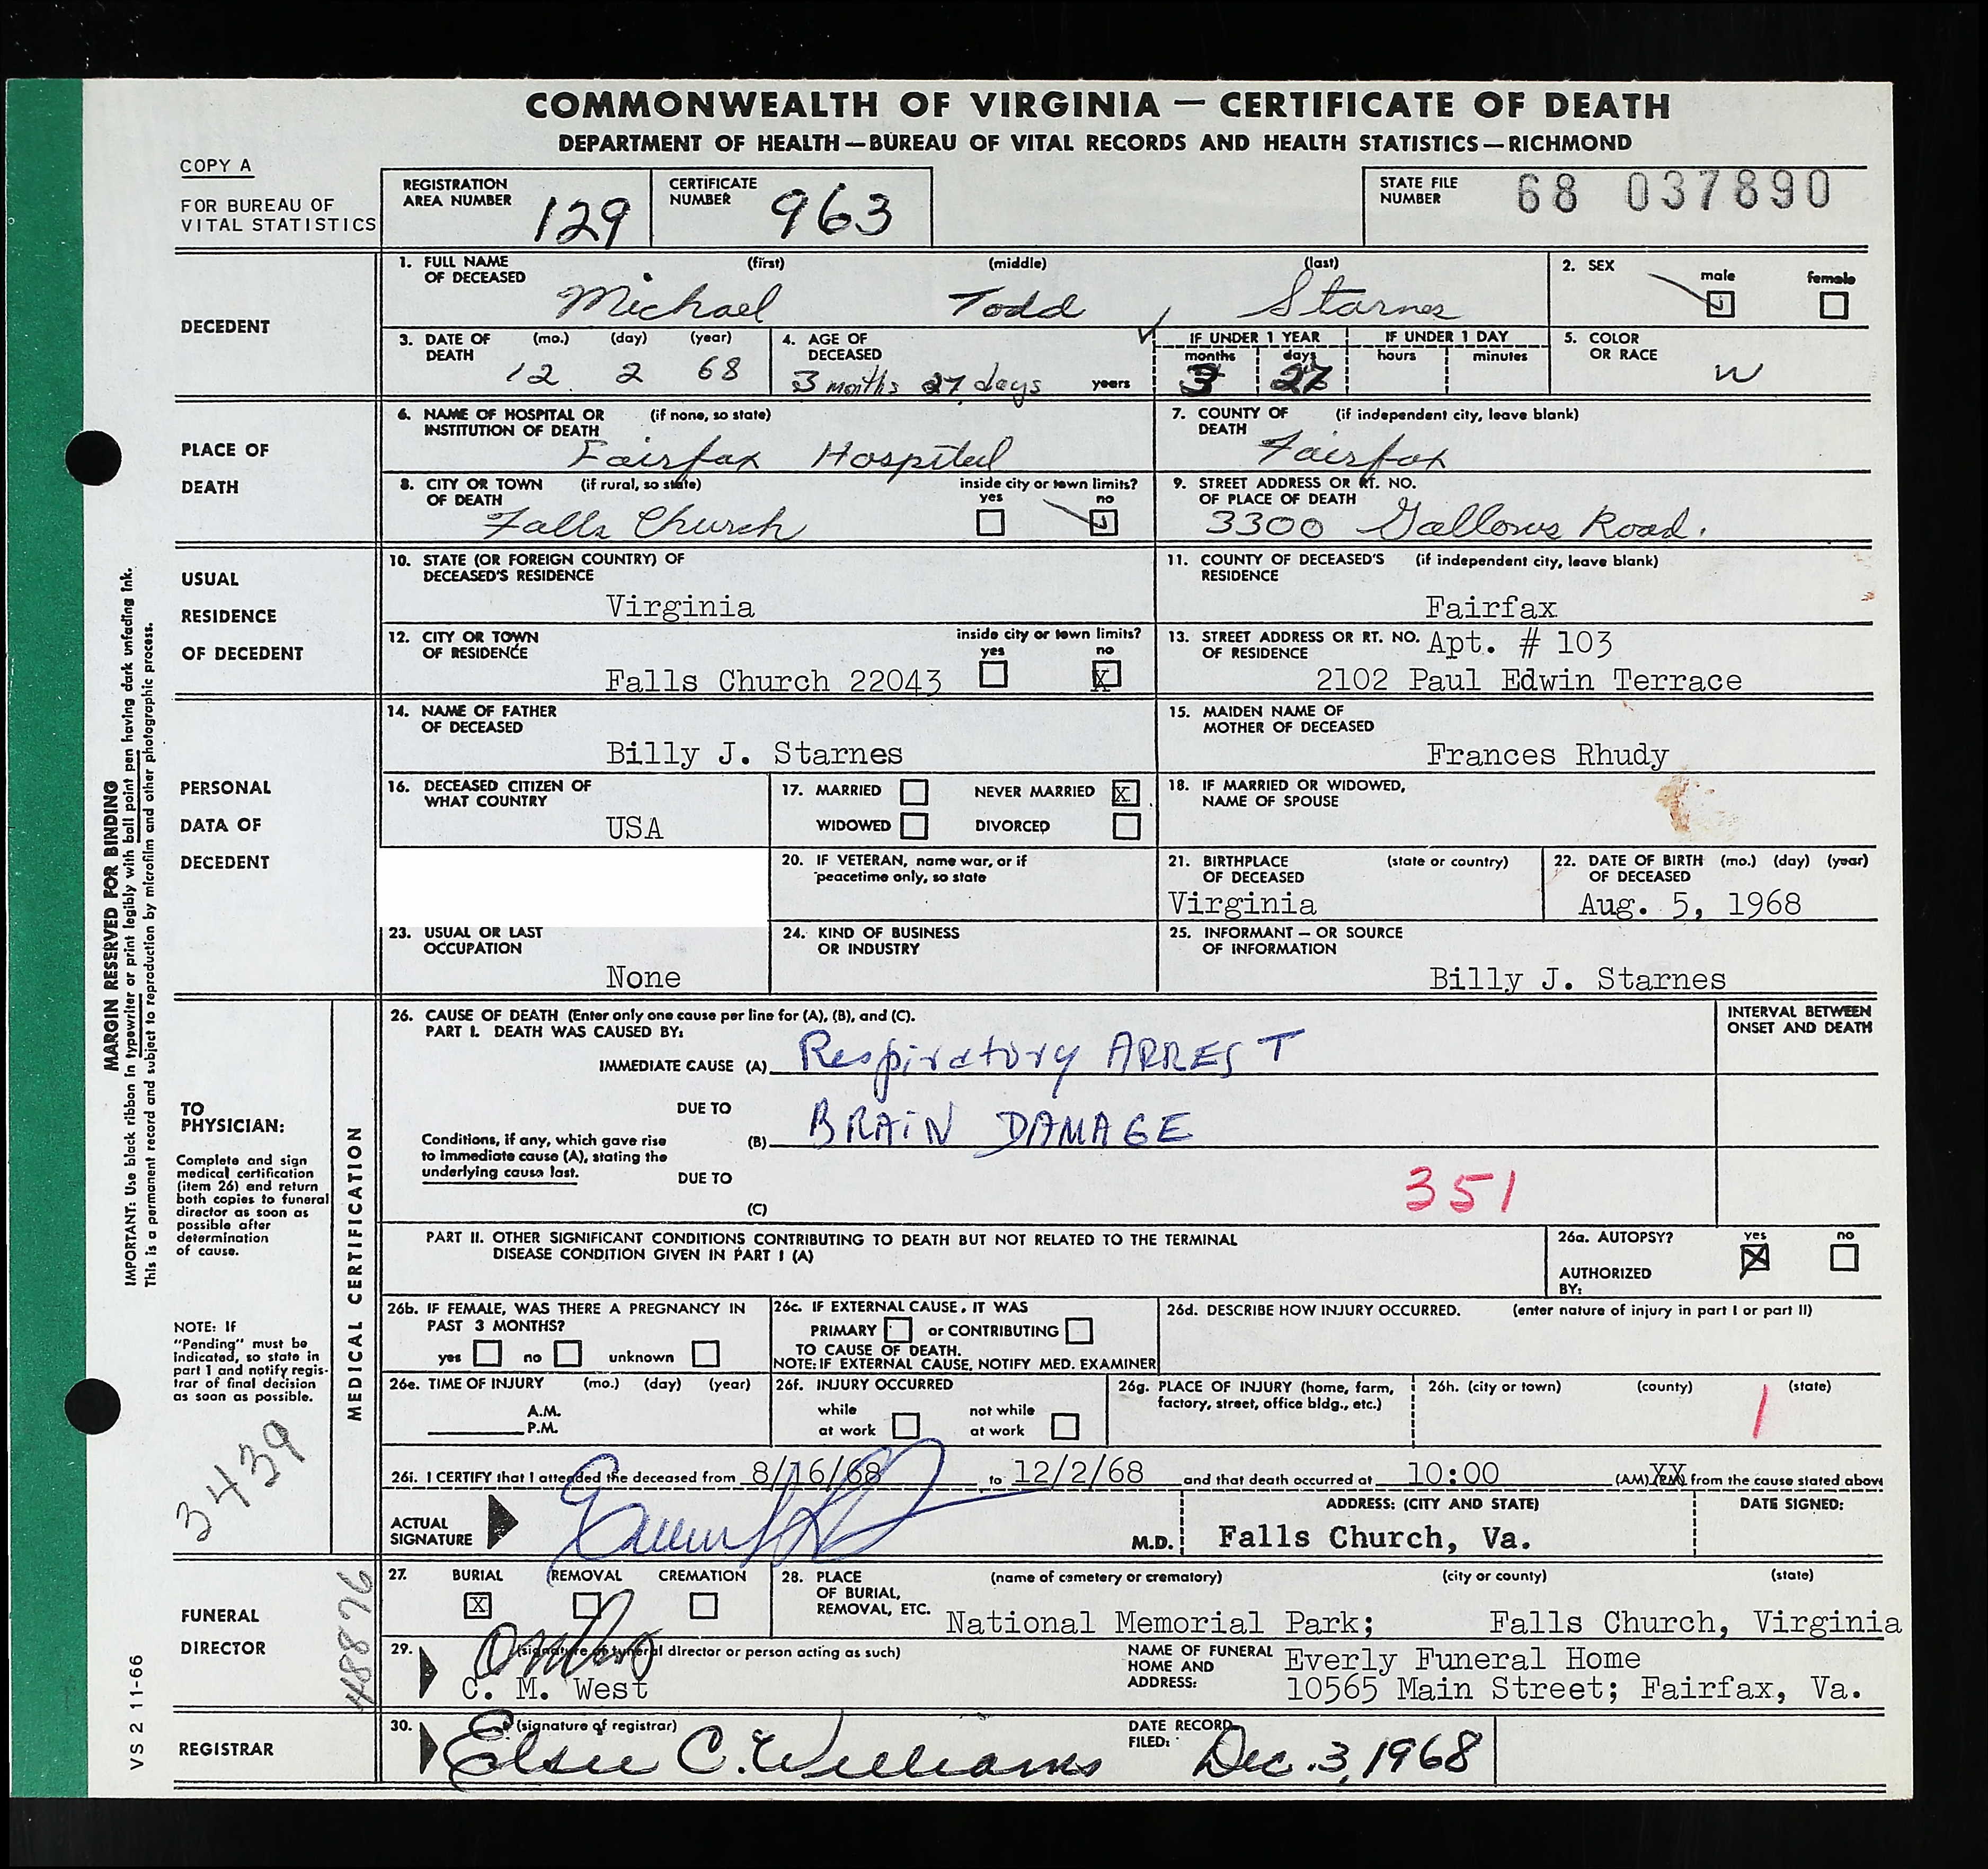 COMMONWEALTH OF VIRGINIA — CERTIFICATE OF DEATH
DEPARTMENT OF HEALTH—BUREAU OF VITAL RECORDS AND HEALTH STATISTICS—RICHMOND
COPY A
FOR BUREAU OF
VITAL STATISTICS
REGISTRATION
AREA NUMBER 129
CERTIFICATE
NUMBER 963
STATE FILE
NUMBER 68 037890
DECEDENT
1. FULL NAME OF DECEASED (first) (middle) (last)
Michael Todd Starnes
2. SEX male female
3. DATE OF DEATH (mo.) (day) (year)
12 2 68
4. AGE OF DECEASED
3 months 27 days years
IF UNDER 1 YEAR IF UNDER 1 DAY
months days hours minutes
3 27
5. COLOR OR RACE
W
PLACE OF
DEATH
6. NAME OF HOSPITAL OR INSTITUTION OF DEATH (if none, so state)
Fairfax Hospital
7. COUNTY OF DEATH (if independent city, leave blank)
Fairfax
8. CITY OR TOWN OF DEATH (if rural, so state) inside city or town limits? yes no
Falls Church
9. STREET ADDRESS OR RT. NO. OF PLACE OF DEATH
3300 Gallows Road.
USUAL
RESIDENCE
OF DECEDENT
10. STATE (OR FOREIGN COUNTRY) OF DECEASED'S RESIDENCE
Virginia
11. COUNTY OF DECEASED'S RESIDENCE (if independent city, leave blank)
Fairfax
12. CITY OR TOWN OF RESIDENCE inside city or town limits? yes no
Falls Church 22043 X
13. STREET ADDRESS OR RT. NO. OF RESIDENCE Apt. # 103
2102 Paul Edwin Terrace
PERSONAL
DATA OF
DECEDENT
14. NAME OF FATHER OF DECEASED
Billy J. Starnes
15. MAIDEN NAME OF MOTHER OF DECEASED
Frances Rhudy
16. DECEASED CITIZEN OF WHAT COUNTRY
USA
17. MARRIED NEVER MARRIED X
WIDOWED DIVORCED
18. IF MARRIED OR WIDOWED, NAME OF SPOUSE
20. IF VETERAN, name war, or if peacetime only, so state
21. BIRTHPLACE OF DECEASED (state or country)
Virginia
22. DATE OF BIRTH OF DECEASED (mo.) (day) (year)
Aug. 5, 1968
23. USUAL OR LAST OCCUPATION
None
24. KIND OF BUSINESS OR INDUSTRY
25. INFORMANT — OR SOURCE OF INFORMATION
Billy J. Starnes
MARGIN RESERVED FOR BINDING
IMPORTANT: Use black ribbon in typewriter or print legibly with ball point pen having dark unfading ink.
This is a permanent record and subject to reproduction by microfilm and other photographic process.
TO
PHYSICIAN:
Complete and sign
medical certification
(item 26) and return
both copies to funeral
director as soon as
possible after
determination
of cause.
NOTE: If
"Pending" must be
indicated, so state in
part 1 and notify regis-
trar of final decision
as soon as possible.
3439
MEDICAL CERTIFICATION
26. CAUSE OF DEATH (Enter only one cause per line for (A), (B), and (C).
PART I. DEATH WAS CAUSED BY:
INTERVAL BETWEEN
ONSET AND DEATH
IMMEDIATE CAUSE (A) Respiratory ARREST
DUE TO
(B) BRAIN DAMAGE
Conditions, if any, which gave rise
to immediate cause (A), stating the
underlying cause last.
DUE TO
(C)
351
PART II. OTHER SIGNIFICANT CONDITIONS CONTRIBUTING TO DEATH BUT NOT RELATED TO THE TERMINAL
DISEASE CONDITION GIVEN IN PART I (A)
26a. AUTOPSY? yes no
X
AUTHORIZED
BY:
26b. IF FEMALE, WAS THERE A PREGNANCY IN
PAST 3 MONTHS?
yes no unknown
26c. IF EXTERNAL CAUSE, IT WAS
PRIMARY or CONTRIBUTING
TO CAUSE OF DEATH.
NOTE: IF EXTERNAL CAUSE, NOTIFY MED. EXAMINER
26d. DESCRIBE HOW INJURY OCCURRED. (enter nature of injury in part I or part II)
26e. TIME OF INJURY (mo.) (day) (year)
A.M.
P.M.
26f. INJURY OCCURRED
while at work not while at work
26g. PLACE OF INJURY (home, farm,
factory, street, office bldg., etc.)
26h. (city or town) (county) (state)
1
26i. I CERTIFY that I attended the deceased from 8/16/68 to 12/2/68 and that death occurred at 10:00 (AM) (PM) XX from the cause stated above
ACTUAL
SIGNATURE
M.D.
ADDRESS: (CITY AND STATE)
Falls Church, Va.
DATE SIGNED:
48876
FUNERAL
DIRECTOR
27. BURIAL REMOVAL CREMATION
X
28. PLACE OF BURIAL, REMOVAL, ETC. (name of cemetery or crematory) (city or county) (state)
National Memorial Park; Falls Church, Virginia
29. (signature of funeral director or person acting as such)
C. M. West
NAME OF FUNERAL HOME AND ADDRESS:
Everly Funeral Home
10565 Main Street; Fairfax, Va.
REGISTRAR
30. (signature of registrar)
Elsie C. Williams
DATE RECORD FILED:
Dec. 3, 1968
VS 2 11-66